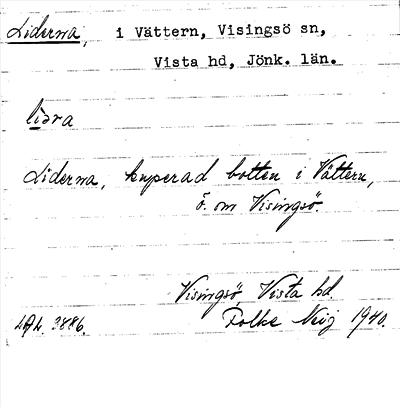 Liderna, i Vättern, Visingsö sn,
Vista hd, Jönk. län.
lidra
Liderna, kuperad botten i Vättern,
ö. om Visingsö.
Visingsö, Vista hd.
3886. Folke 1940.